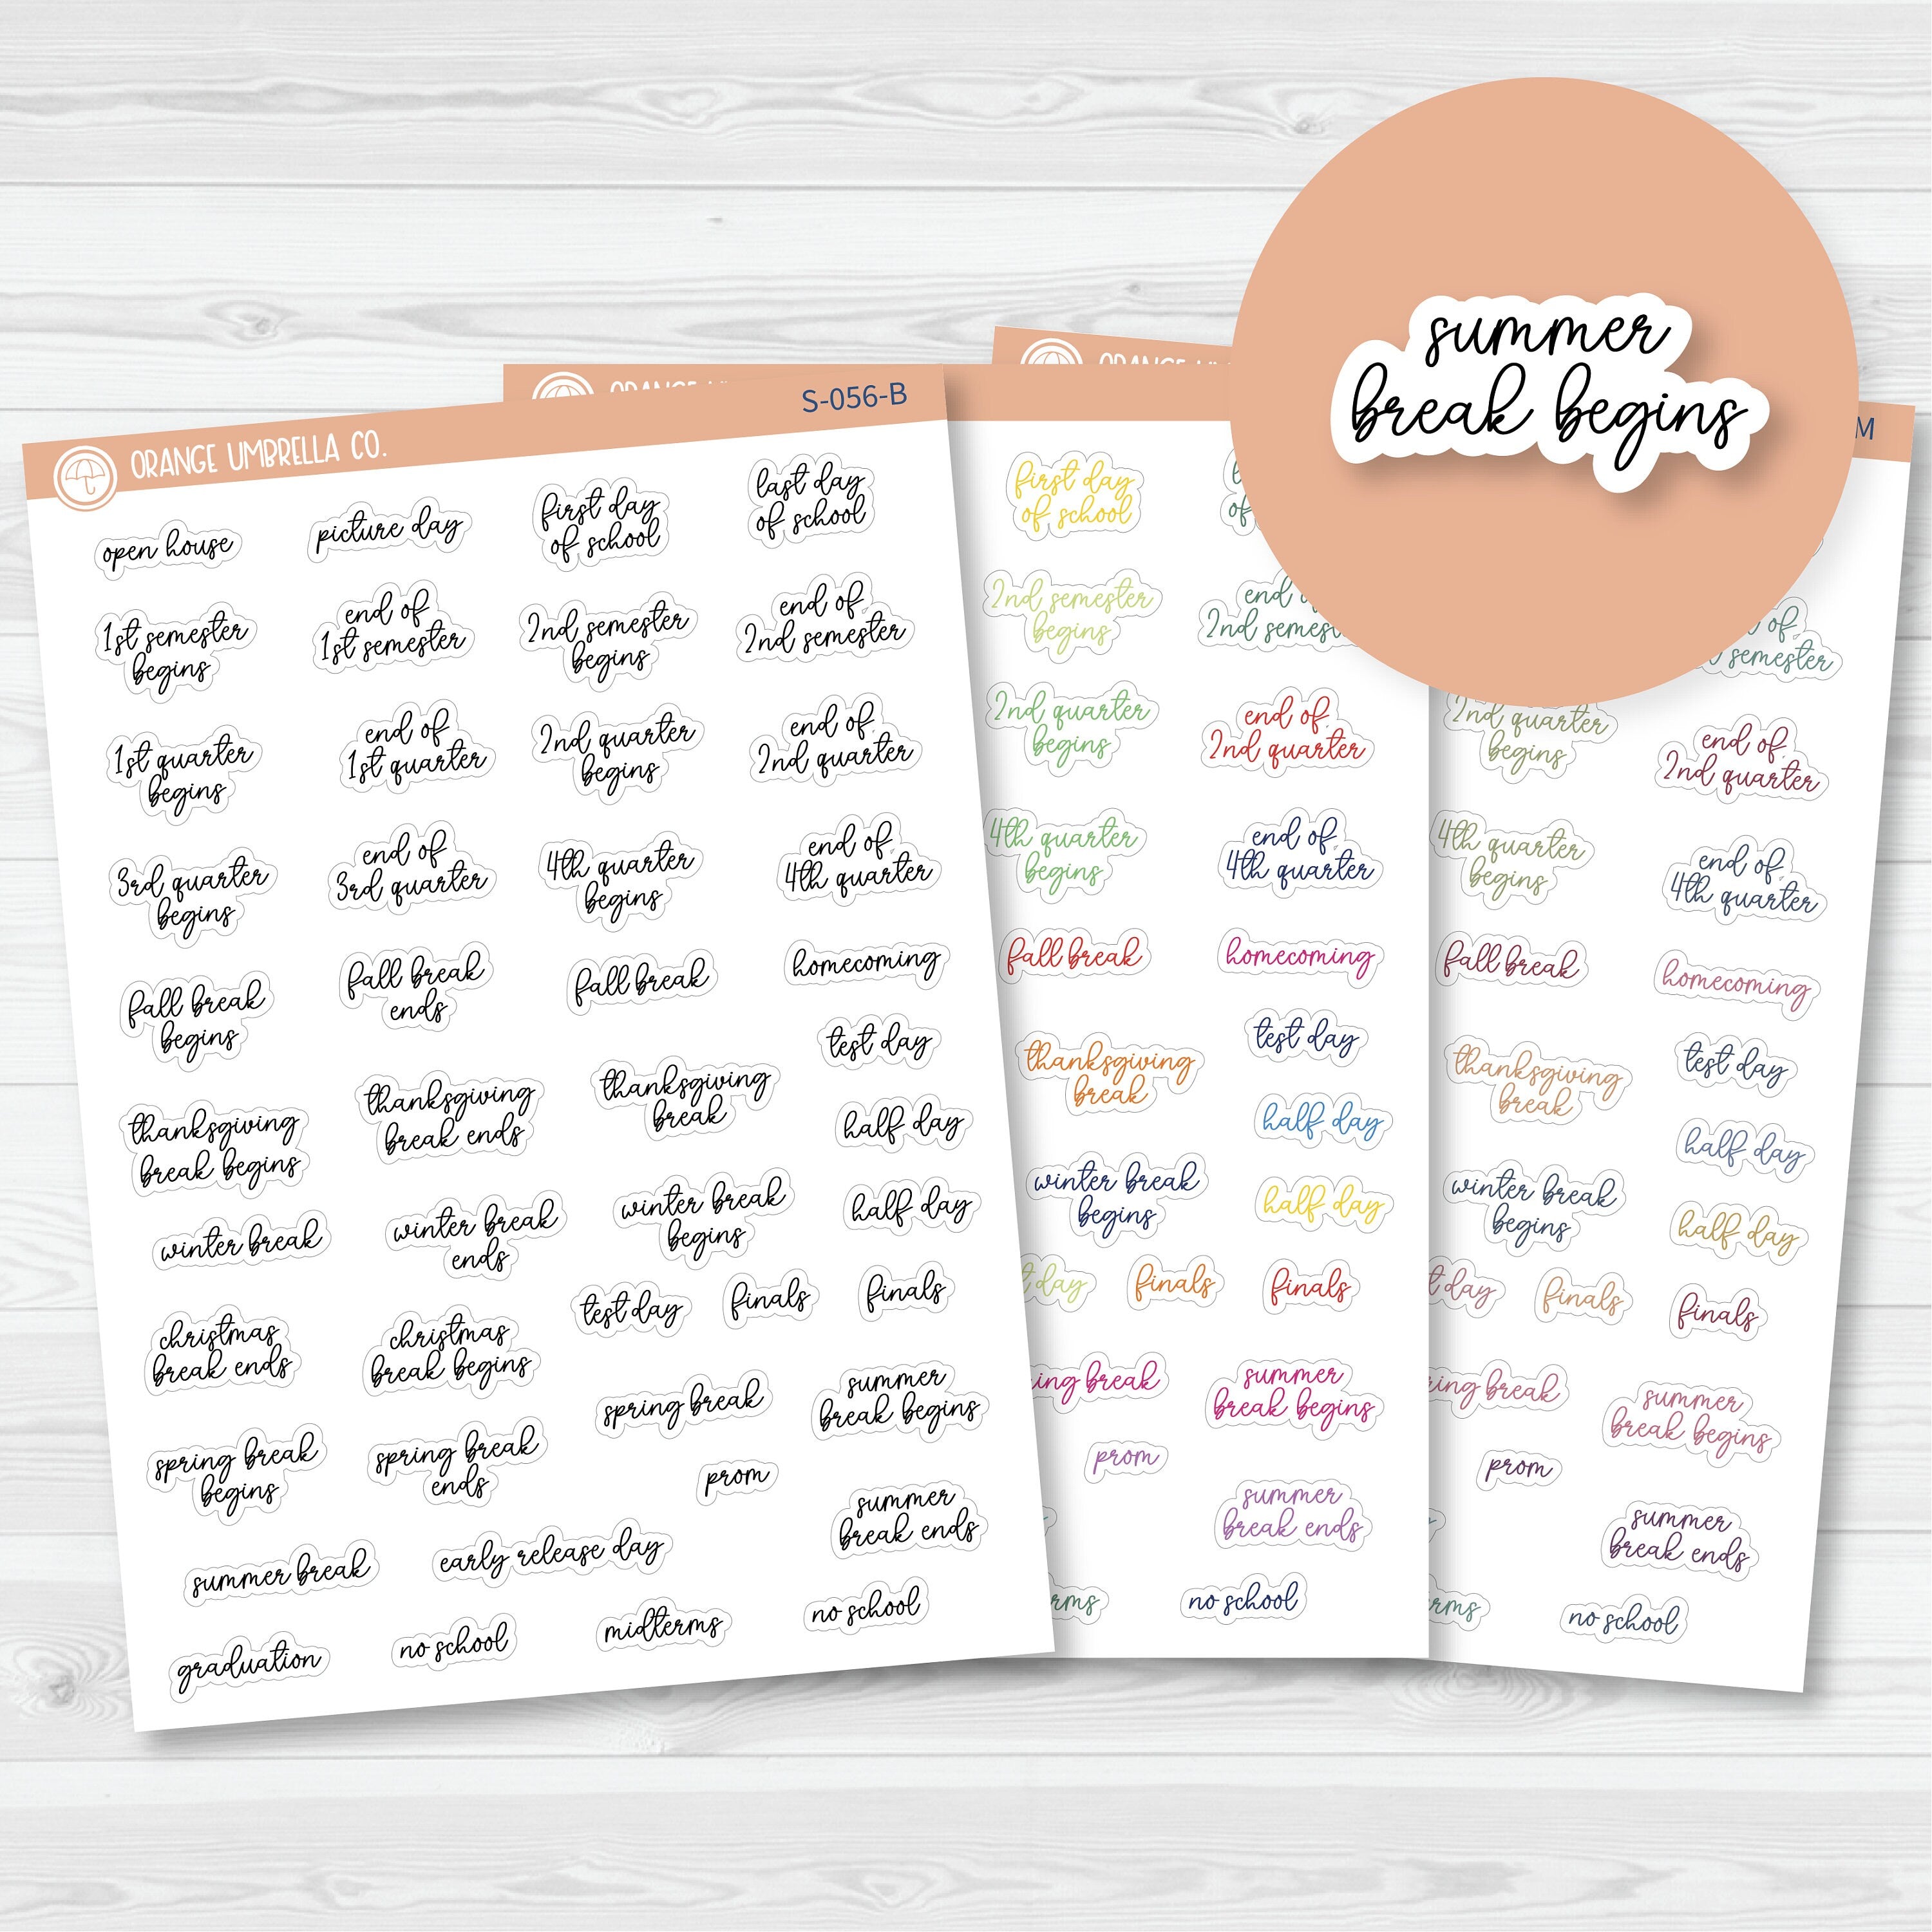 summer
break begins
ORANGE UMBRELLA CO.
S-056-B
open house
picture day
first day
of school
last day
of school
1st semester
begins
end of
1st semester
2nd semester
begins
end of
2nd semester
1st quarter
begins
end of
1st quarter
2nd quarter
begins
end of
2nd quarter
3rd quarter
begins
end of
3rd quarter
4th quarter
begins
end of
4th quarter
fall break
begins
fall break
ends
fall break
homecoming
test day
thanksgiving
break begins
thanksgiving
break ends
thanksgiving
break
half day
winter break
winter break
ends
winter break
begins
half day
christmas
break ends
christmas
break begins
test day
finals
finals
spring break
begins
spring break
ends
spring break
summer
break begins
prom
summer break
early release day
summer
break ends
graduation
no school
midterms
no school
first day
of school
2nd semester
begins
end
2nd semest
2nd quarter
begins
end of
2nd quarter
4th quarter
begins
end of
4th quarter
fall break
homecoming
test day
thanksgiving
break
half day
winter break
begins
half day
day
finals
finals
ing break
summer
break begins
prom
summer
break ends
rms
no school
ORANGE
M
of
semester
2nd quarter
begins
end of
2nd quarter
4th quarter
begins
end of
4th quarter
fall break
homecoming
test day
thanksgiving
break
half day
winter break
begins
half day
t day
finals
finals
ring break
summer
break begins
prom
summer
break ends
rms
no school